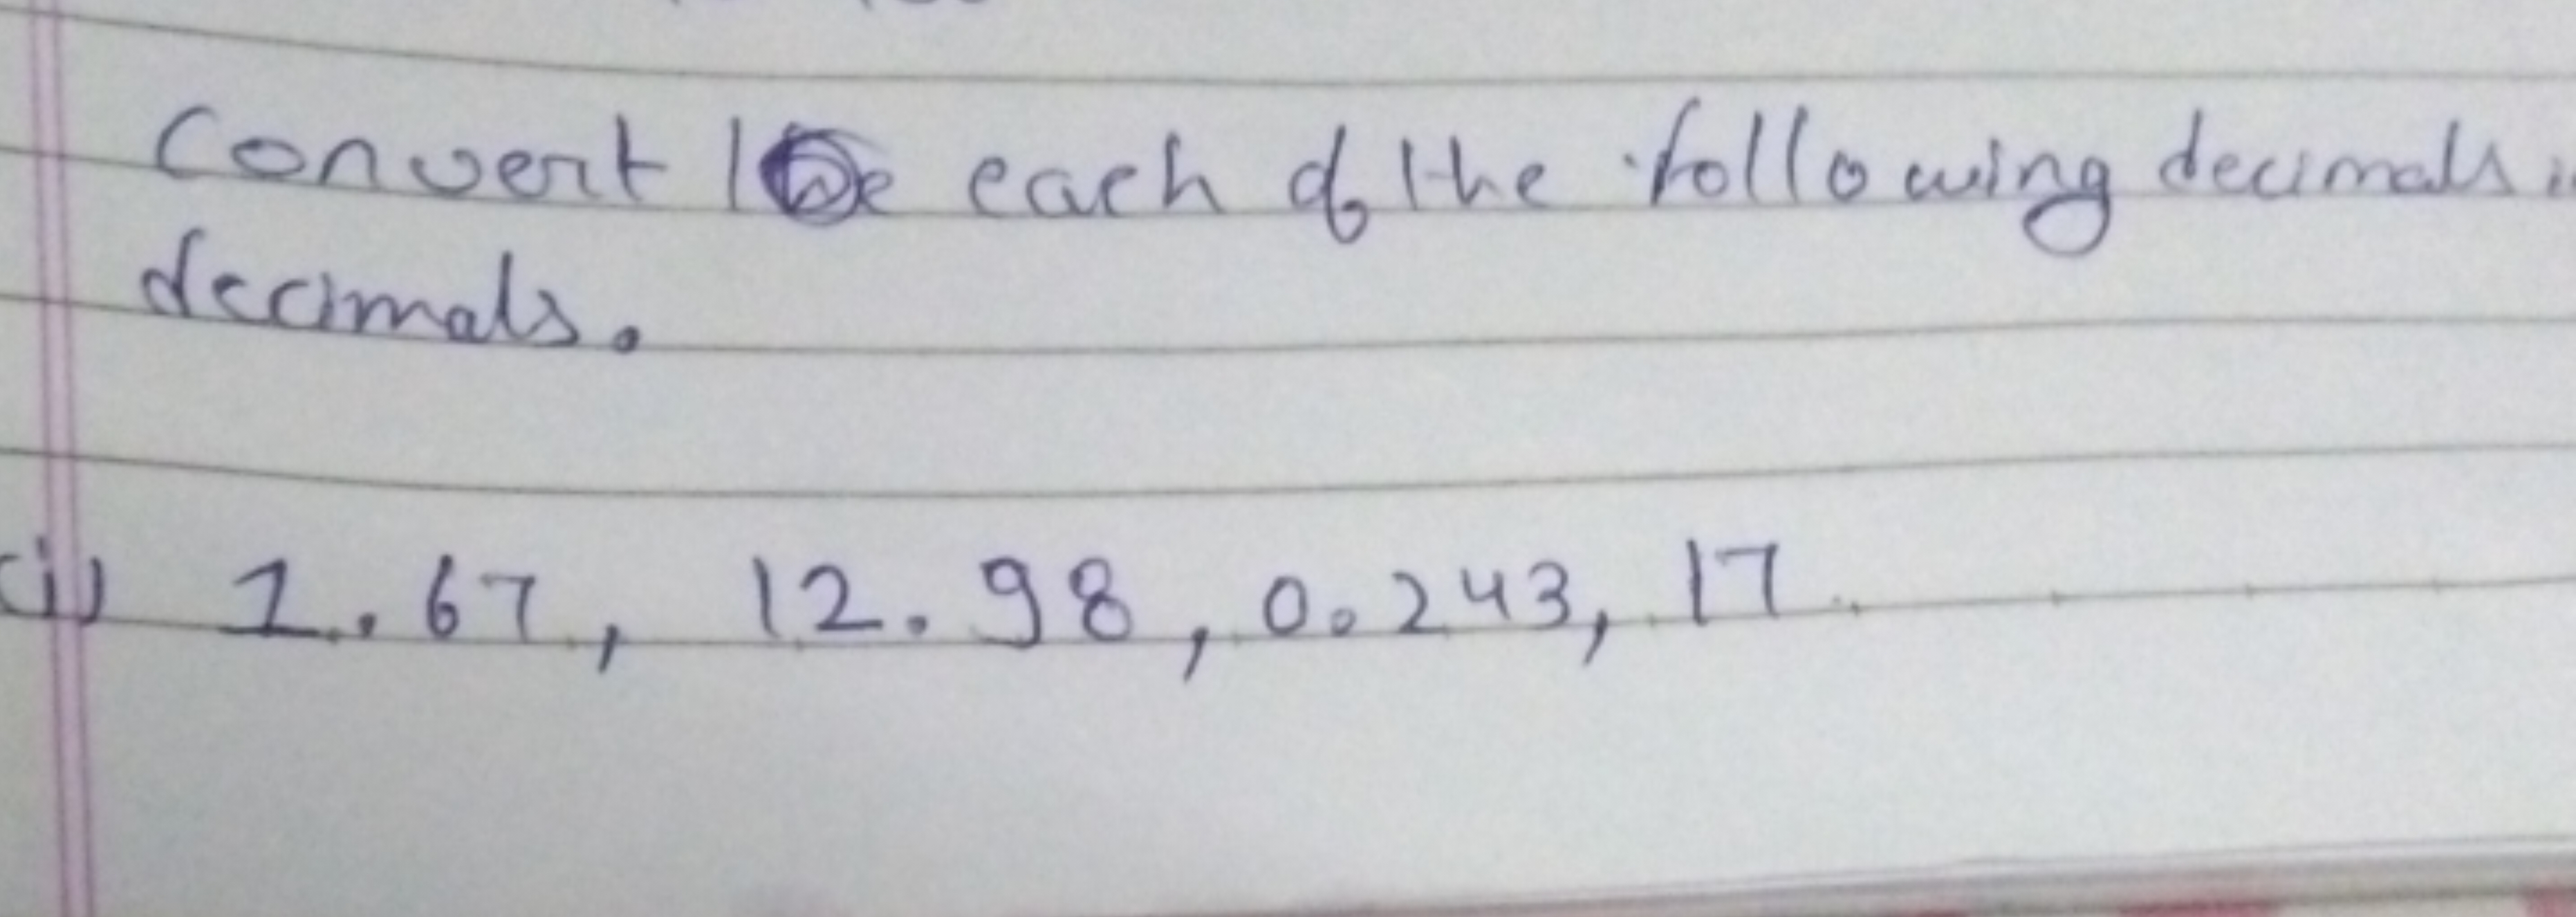 Convert the each of the following decimals
decimals.
(i) 1.67, 12.98, 0.243, 17